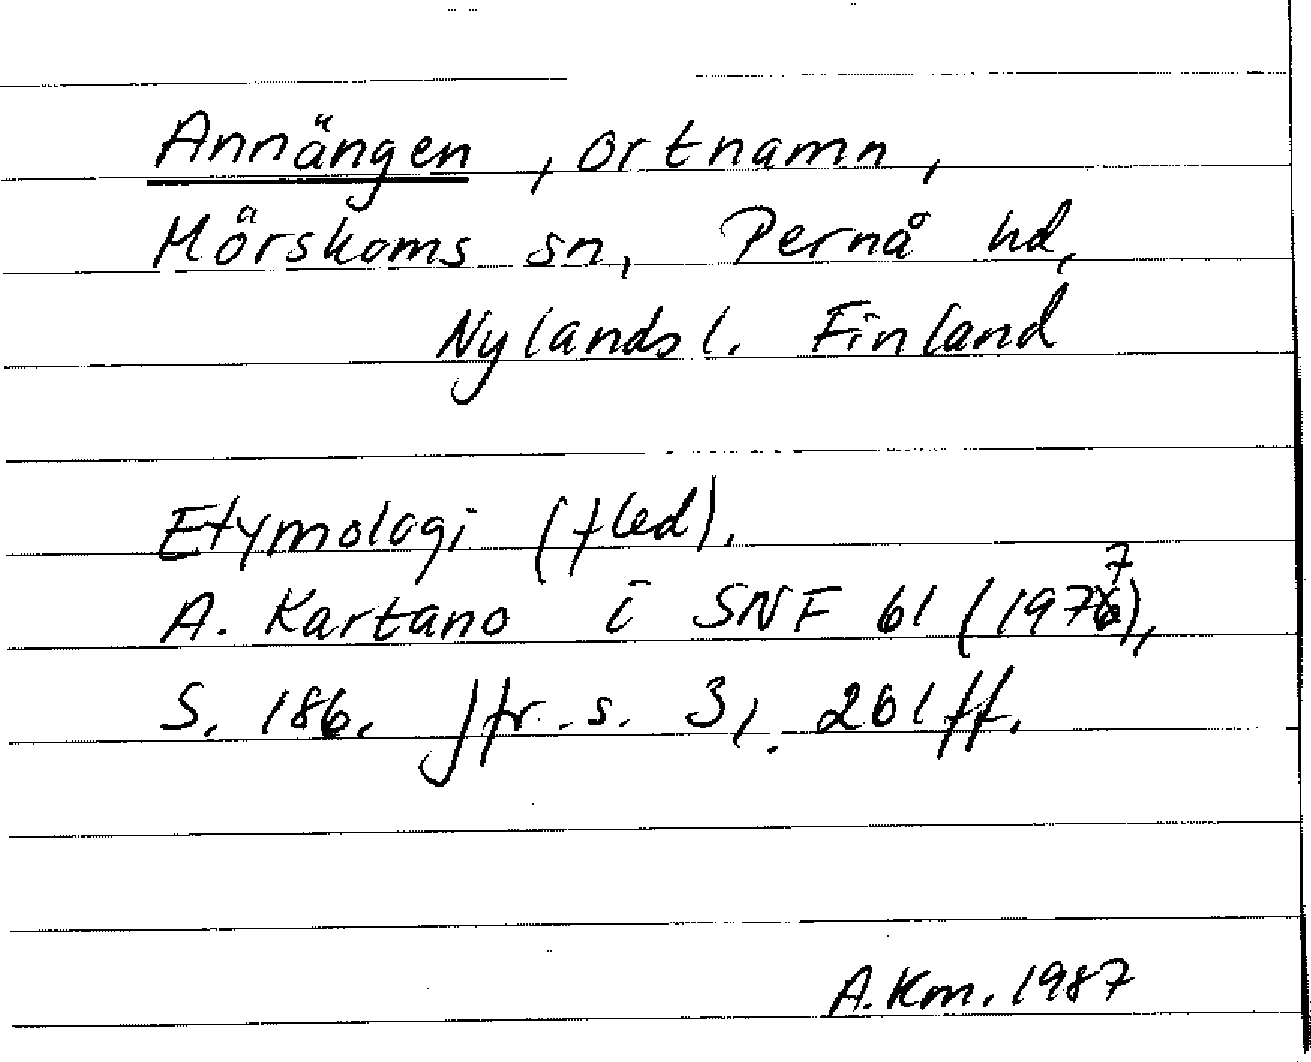 Annängen, ortnamn,
Mörskoms sn, Pernå hd,
Nylands l. Finland
Etymologi (fled).
A. Kartano i SNF 61 (1977),
S. 186. Jfr s. 31, 261 ff.
A.Km. 1987